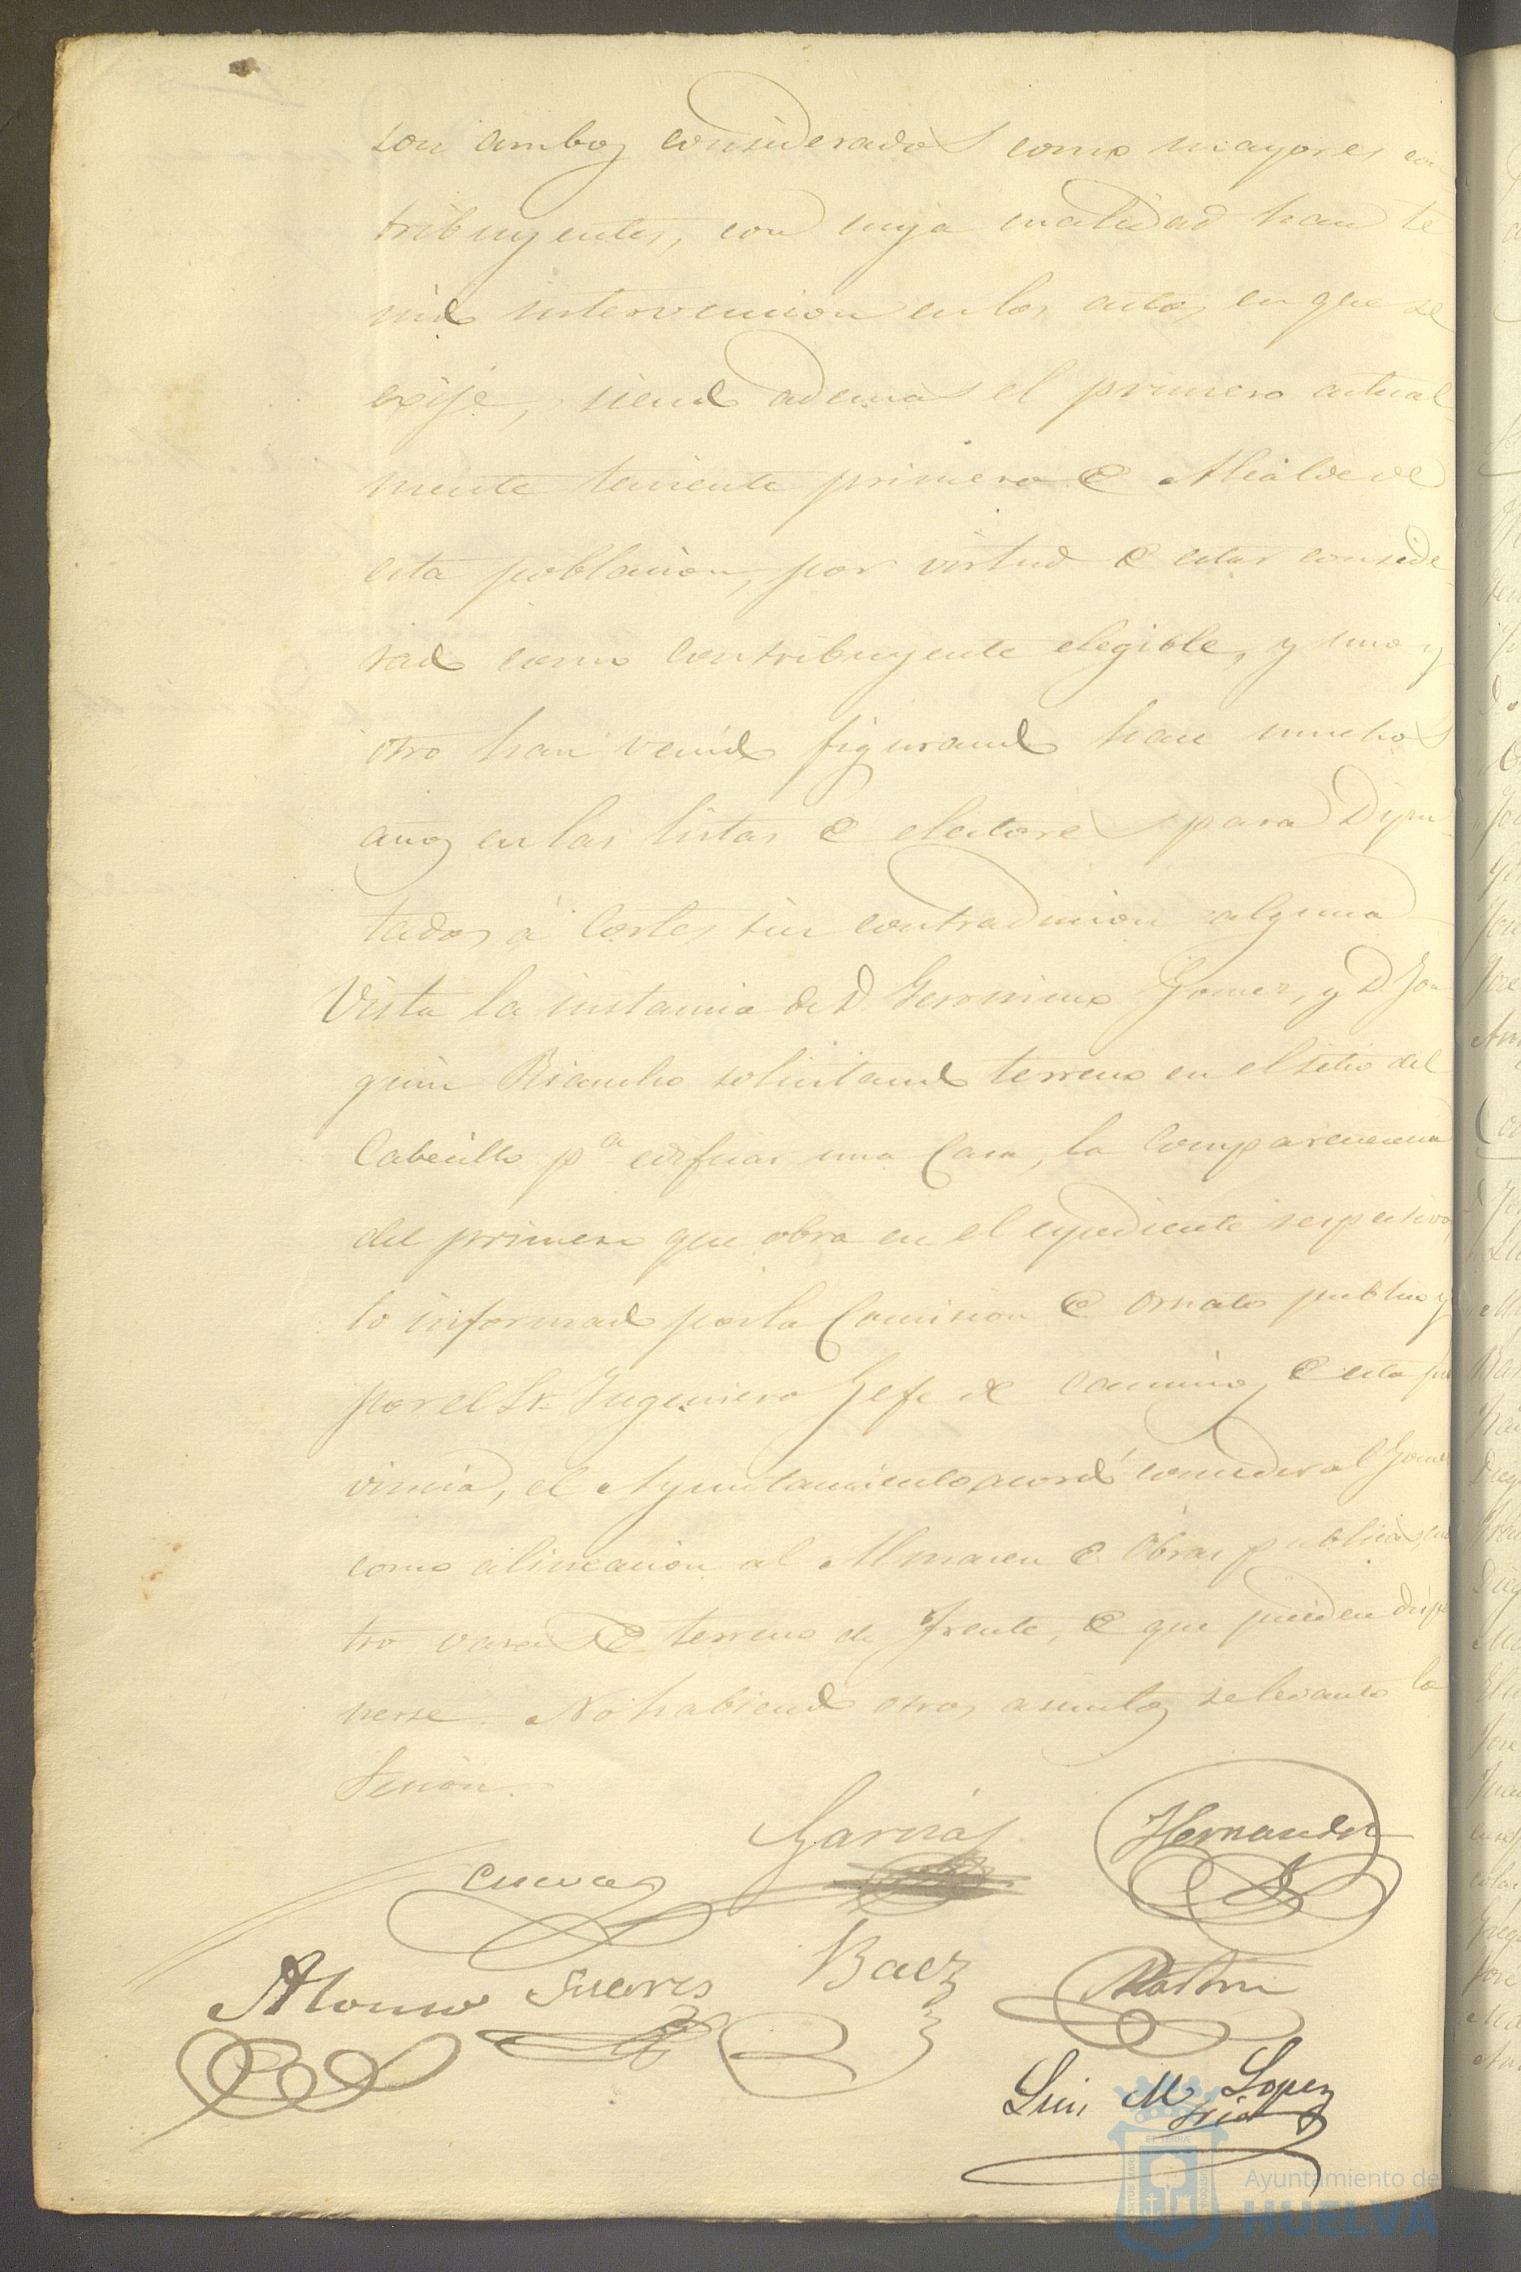 son ambos considerados como mayores con
tribuyentes, con cuya cualidad han te
nido intervencion en los actos en que se
exije, siendo ademas el primero actual
mente teniente primero de Alcalde de
esta poblacion, por virtud de estar conside
rado como contribuyente elegible, y uno y
otro han venido figurando hace muchos
años en las listas de electores para Dipu
tados á Cortes sin contradiccion alguna
Vista la instancia de D. Geronimo Gomez, y D. Joa
quin Riancho solicitando terreno en el sitio del
Cabecillo pa edificar una Casa, la comparecencia
del primero que obra en el espediente respectivo,
lo informado por la Comision de ornato publico y
por el Sr. Ingeniero Gefe de Caminos de esta pro
vincia, el Ayuntamiento acordó conceder al Gomez
como alineacion al Almacen de Obras publicas, cua
tro varas de terreno de frente, de que pueden dispo
nerse. No habiendo otros asuntos se levanto la
Sesion.
Garcia Hernandez
Cuevas
Alonso Suares Baez Mastre
Luis M Lopez
Srio
Ayuntamiento de
HUELVA